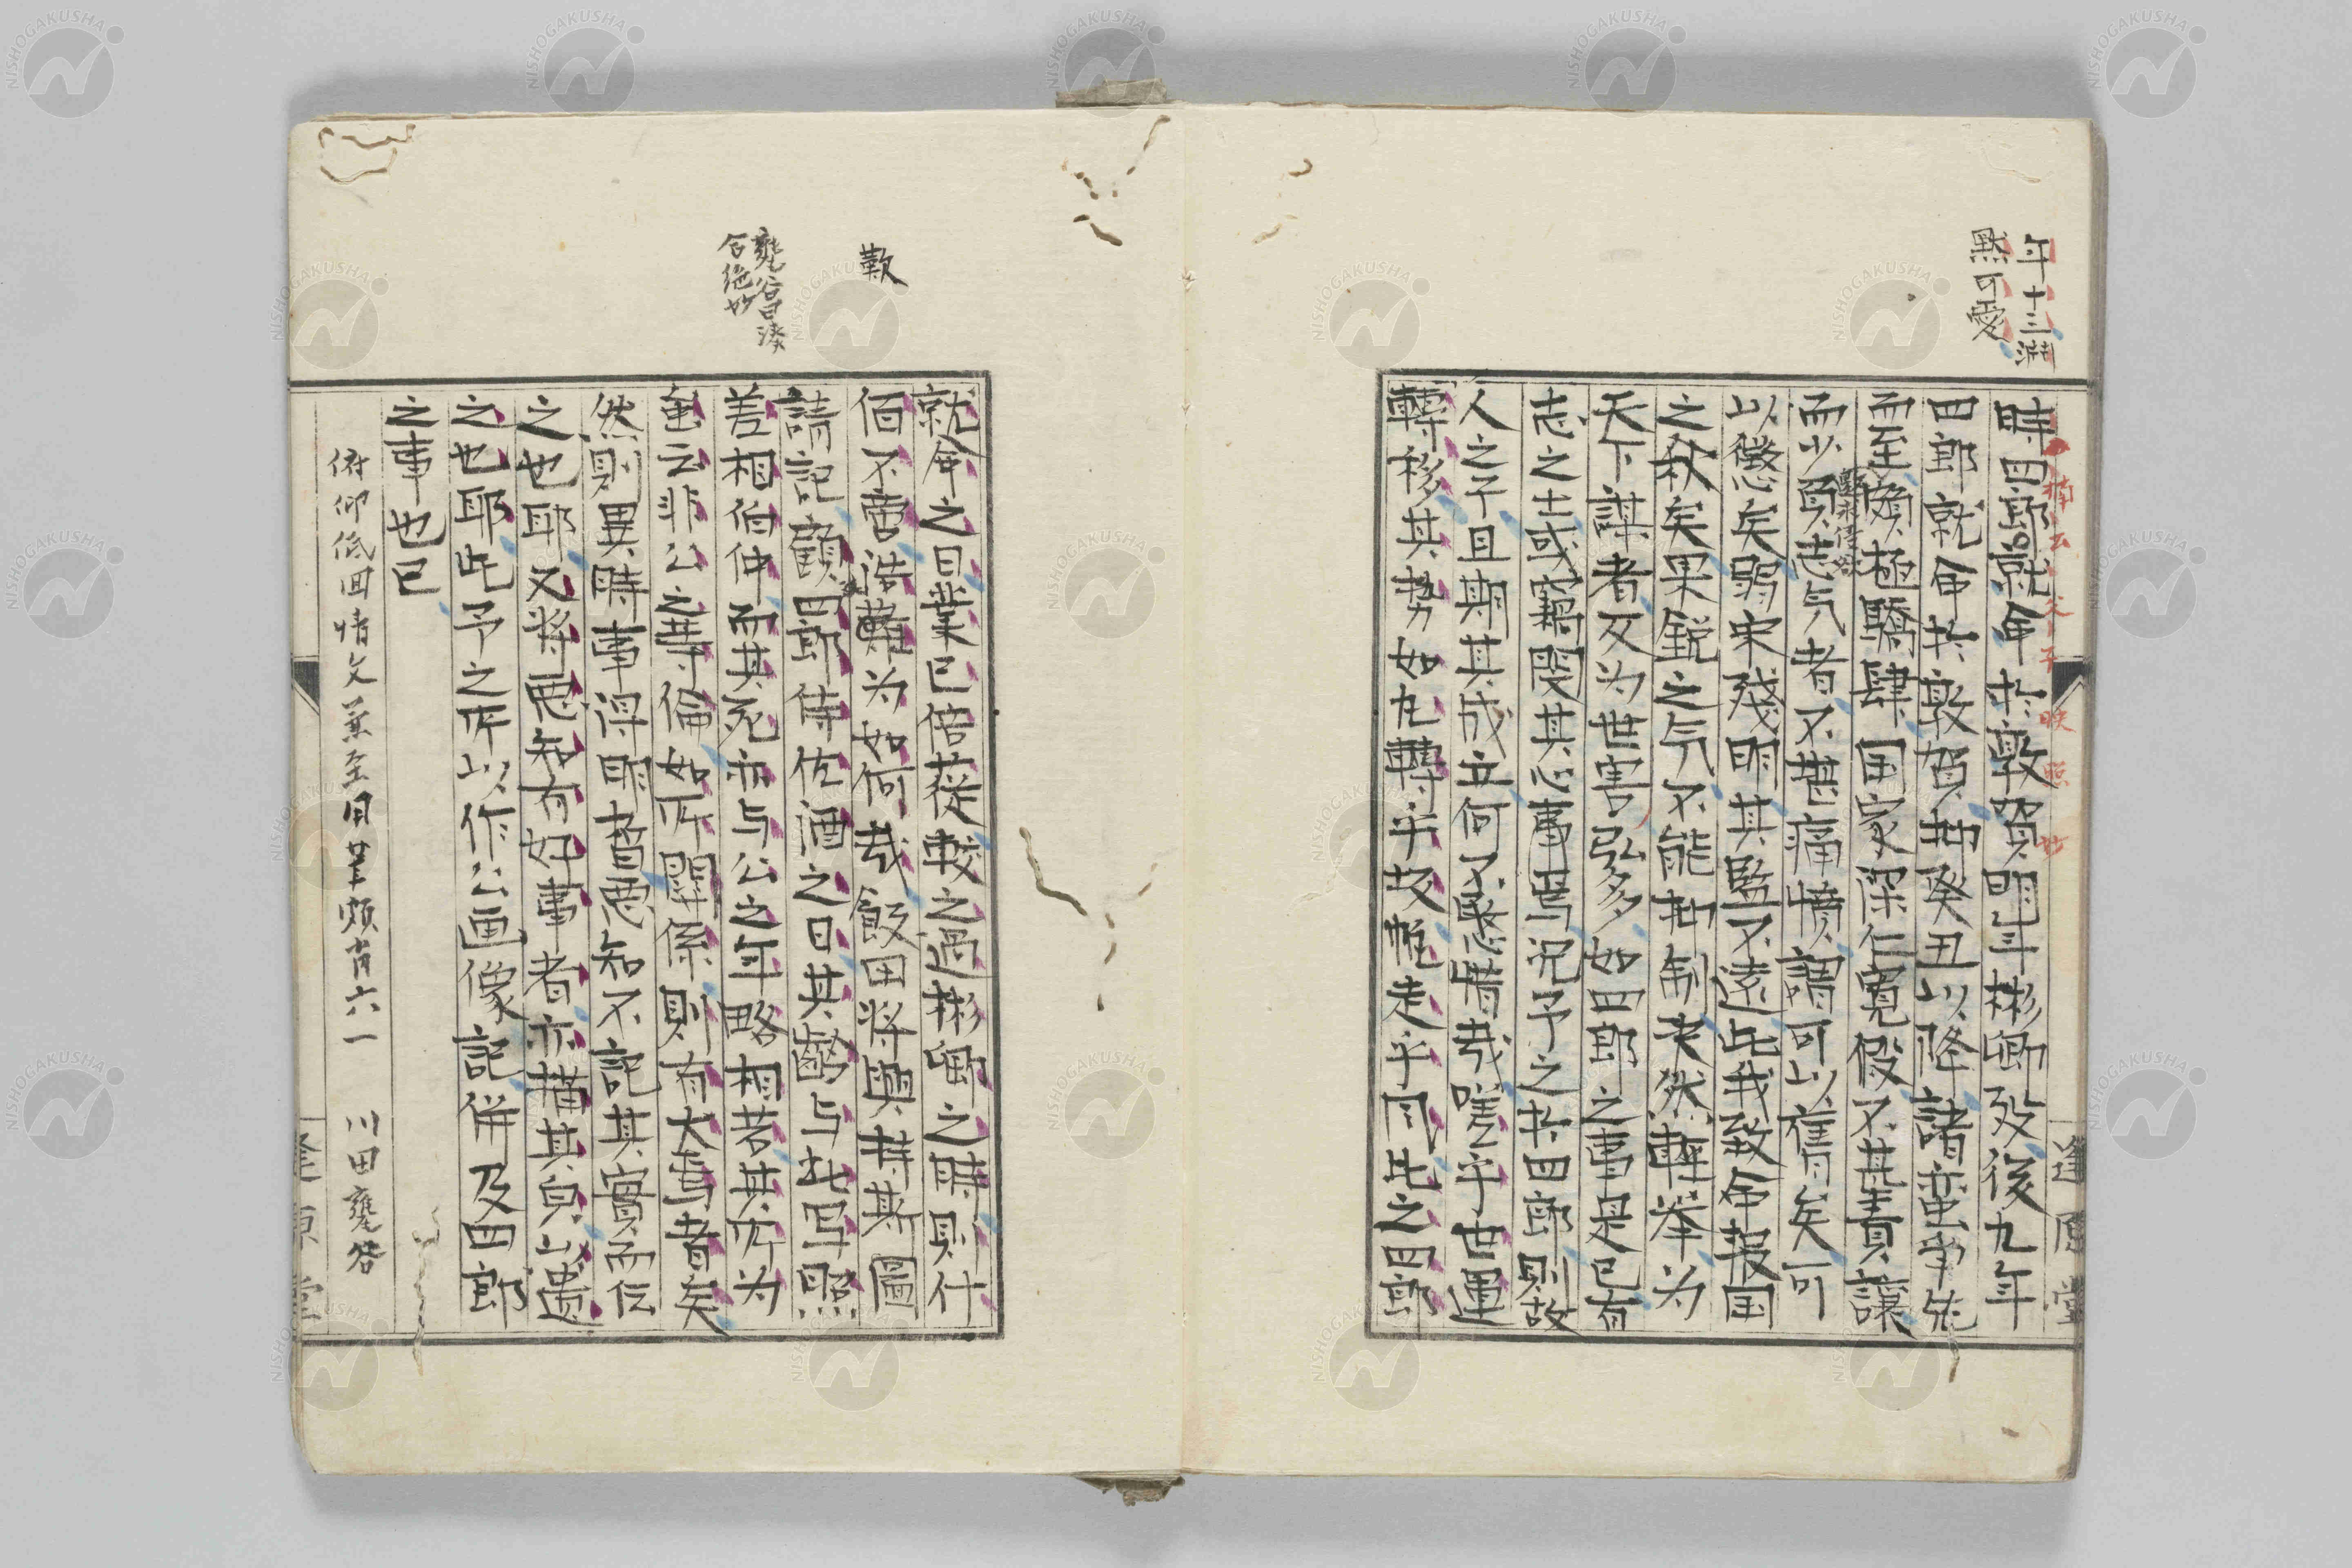 年十三淵
黙可愛
楠公父子映照妙
時四郎就命於敦賀明年彬卿歿後九年
四郎就命於敦賀抑癸丑以降諸蛮爭先
而至頗極驕肆国家深仁寬假不其責讓
而少負志气者不堪痛憤謂可以雈矣可
以懲矣弱宋殘明其監不遠此我致命報国
之秋矣果銳之气不能抑制決然輕举为
天下謀者反为世害弘多如四郎之事是已有
志之士或竊閔其心事焉况予之於四郎則故
人之子且期其成立何不愍惜哉嗟乎世運
轉移其勢如丸轉乎坂輗走乎冈比之四郎
逢原堂
歎
甕谷曰湊
合絶妙
就命之日業已倍蓰較之過彬卿之時則什
佰不啻浩歎为如何哉飯田將興持斯圖
請記顧四郎侍佐酒之日其齡与此写照
差相伯仲而其死亦与公之年略相若其所为
雖云非公之等倫如所關係則有大焉者矣
然則異時事淂明晳惡知不記其實而伝
之也耶又將惡知有好事者亦描其皃以遺
之也耶此予之所以作公画像記併及四郎
之事也已
俯仰低回情文兼至用筆頗肖六一 川田甕谷
逢原堂